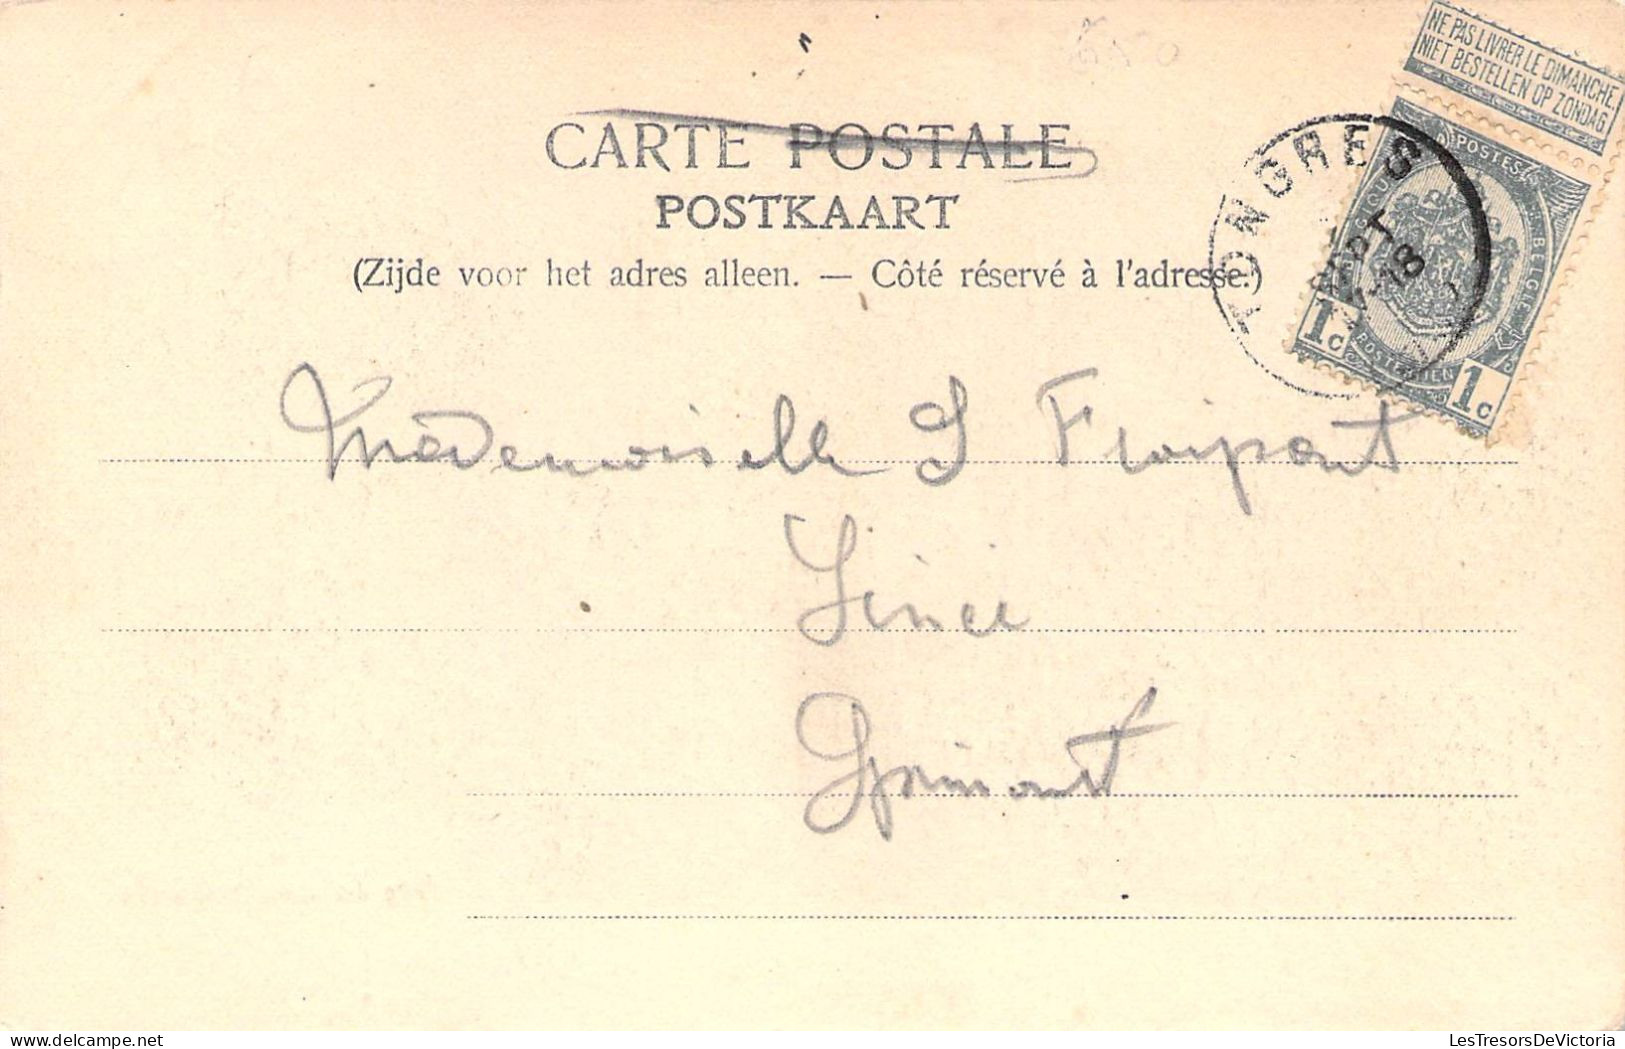 NE PAS LIVRER LE DIMANCHE.
NIET BESTELLEN OP ZONDAG
CARTE POSTALE
POSTKAART
(Zijde voor het adres alleen. — Côté réservé à l'adresse.)
TONGRES
SEPT
17-18
POSTES
BELGIQUE
POSTERIJEN
1c
1c
Mademoiselle J Fraipont
Lincé
Sprimont
LesTresorsDeVictoria